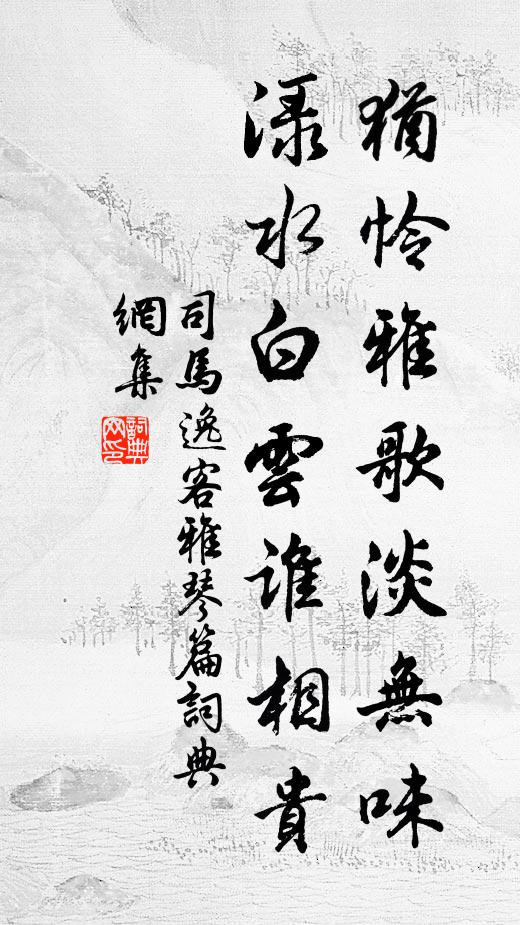 猶怜雅歌淡無味
渌水白雲谁相貴
司馬逸客雅琴篇詞典
網集
詞典
网印